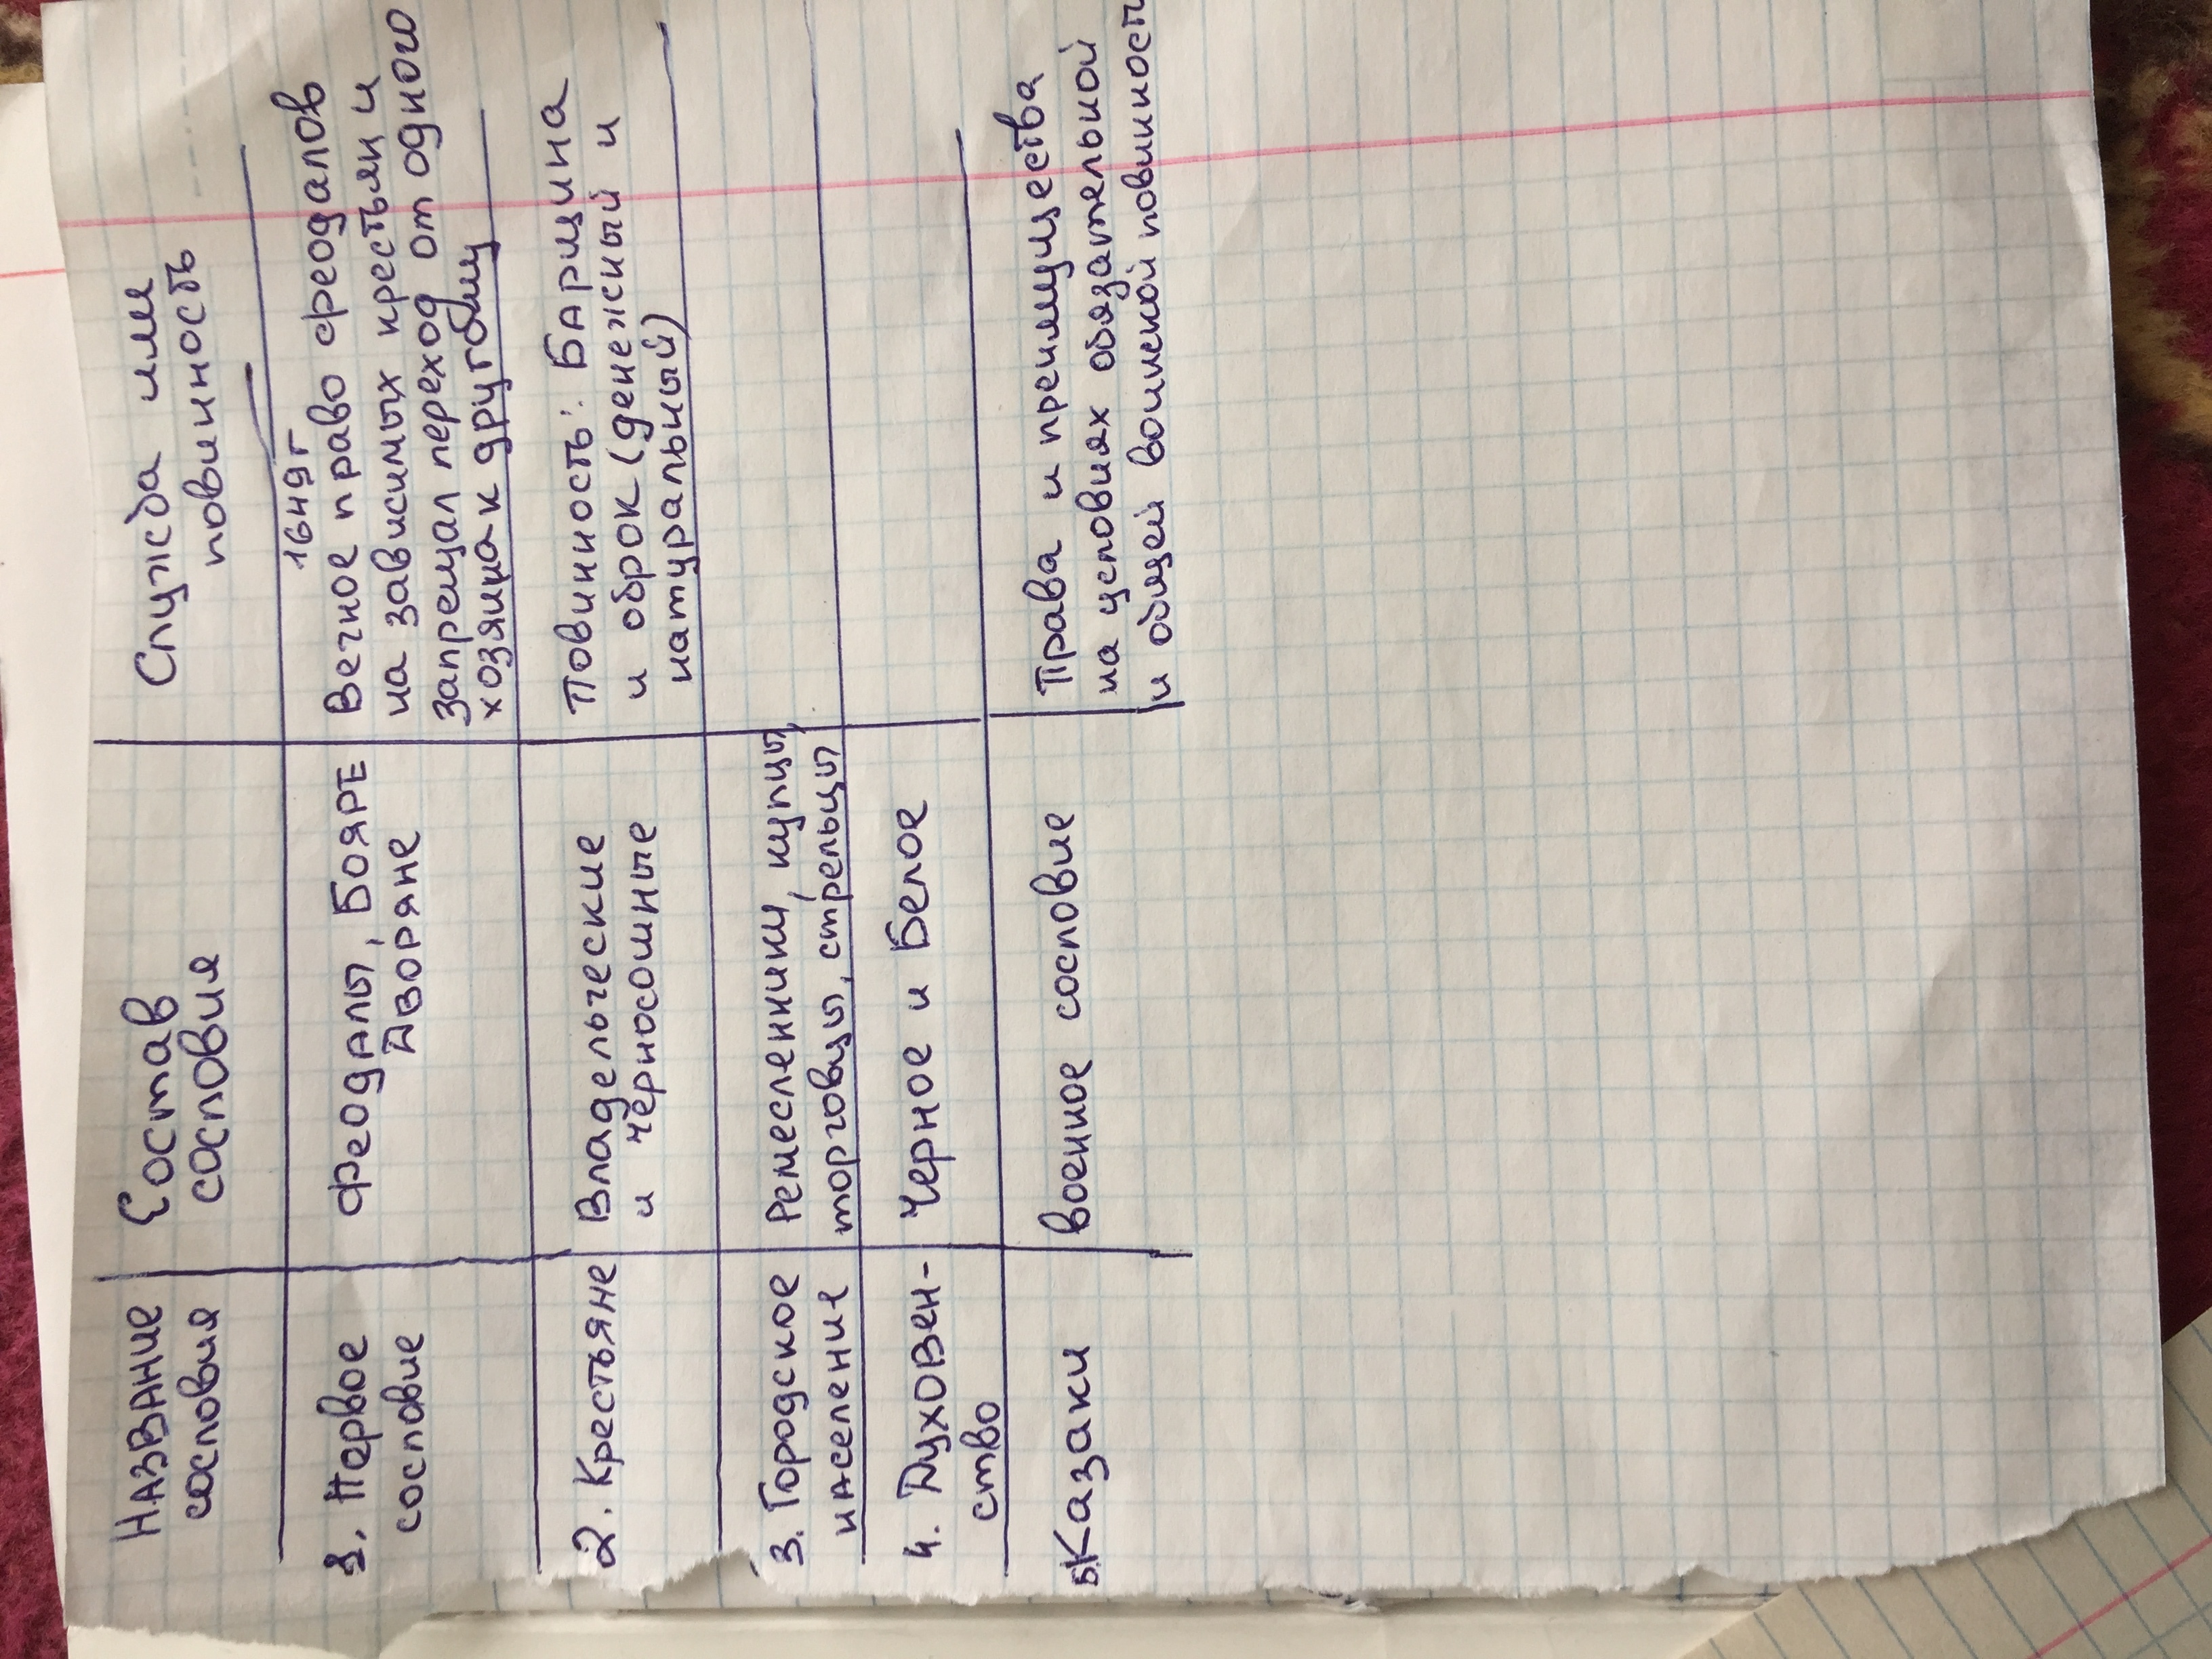 Название сословия
Состав сословия
Служба или повинность
1. Первое сословие
Феодалы, Бояре
Дворяне
1649г
Вечное право феодалов
на зависимых крестьян и
запрещал переход от одного
хозяина к другому
2. Крестьяне
Владельческие
и чёрносошные
Повинность: Барщина
и оброк (денежный и
натуральный)
3. Городское
население
Ремесленники, купцы,
торговцы, стрельцы
4. Духовен-
ство
Черное и Белое
5. Казаки
военное сословие
Права и преимущества
на условиях обязательной
и общей воинской повинност